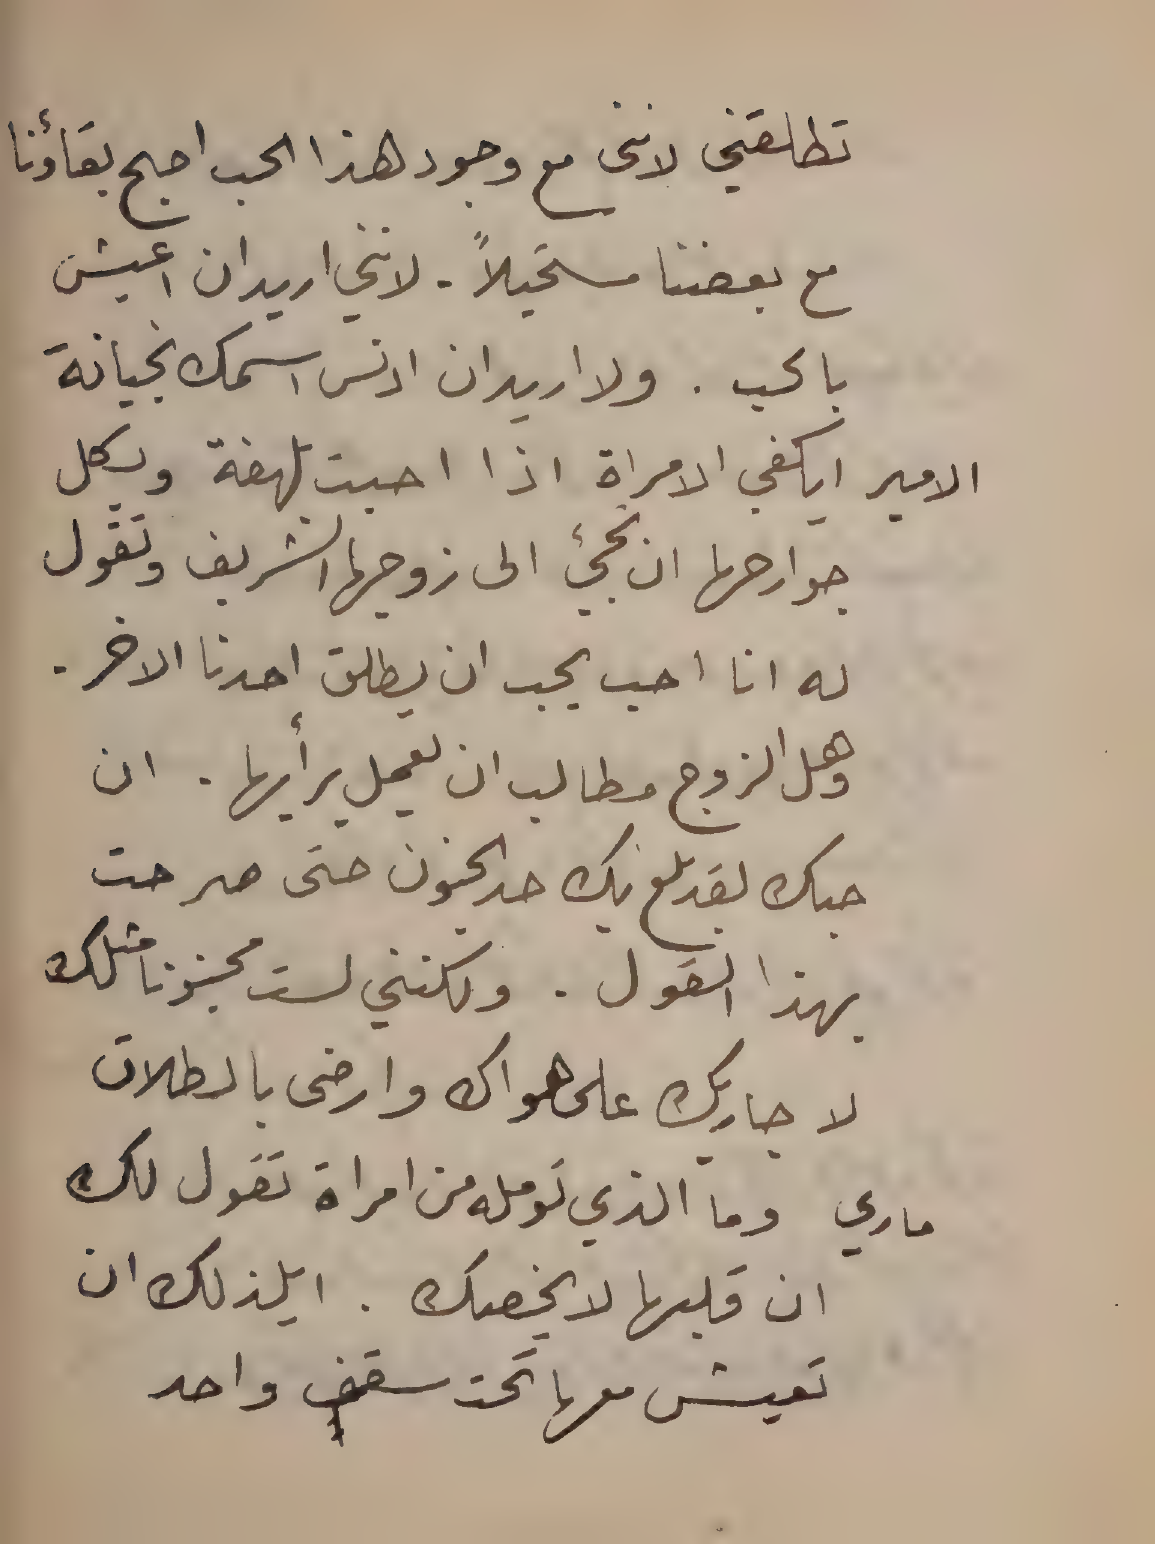 تطلقني لانني مع وجود هذا الحب اصبح بقاؤنا
مع بعضنا مستحيلاً . لانني اريد ان اعيش
بالحب . ولا اريد ان ادنس اسمك بخيانة
الامير ايكفي الامراة اذا احبت بلهفة وبكل
جوارحها ان تجيئ الى زوجها الشريف وتقول
له انا احب يجب ان يطلق احدنا الاخر .
وهل الزوج مطالب ان يعمل برأيها . ان
حبك لقد بلغ بك حد الجنون حتى صرحت
بهذا القول . ولكنني لست مجنونا مثلك
لاجاريك على هواك وارضى بالطلاق
ماري وما الذي تومله من امراة تقول لك
ان قلبها لا يخصك . ايلذ لك ان
تعيش معها تحت سقف واحد